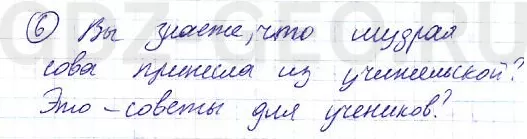 ⑥ Вы знаете, что мудрая
сова принесла из учительской?
Это – советы для учеников.